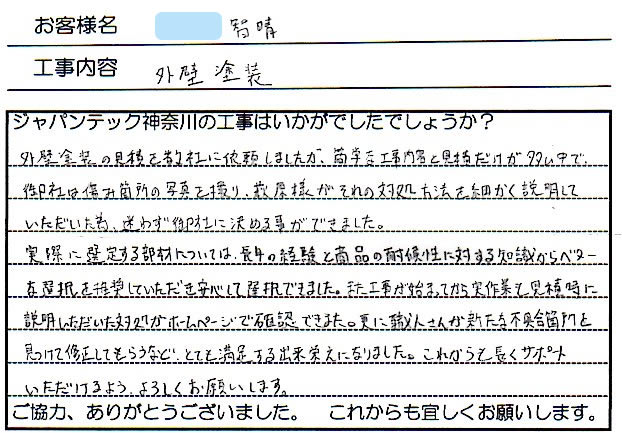 お客様名 智晴
工事内容 外壁塗装
ジャパンテック神奈川の工事はいかがでしたでしょうか？
外壁塗装の見積を数社に依頼しましたが、簡単な工事内容と見積だけが多い中で、
御社は傷み箇所の写真を撮り、萩原様がそれの対処方法を細かく説明して
いただいた為、迷わず御社に決める事ができました。
実際に選定する部材については、長年の経験と商品の耐候性に対する知識からベター
な選択を推奨していただき安心して選択できました。また工事が始まってから実作業も見積時に
説明いただいた対処がホームページで確認できました。更に職人さんが新たな不具合箇所を
見つけて修正してもらうなど、とても満足する出来栄えになりました。これからも長くサポート
いただけるよう、よろしくお願いします。
ご協力、ありがとうございました。 これからも宜しくお願いします。